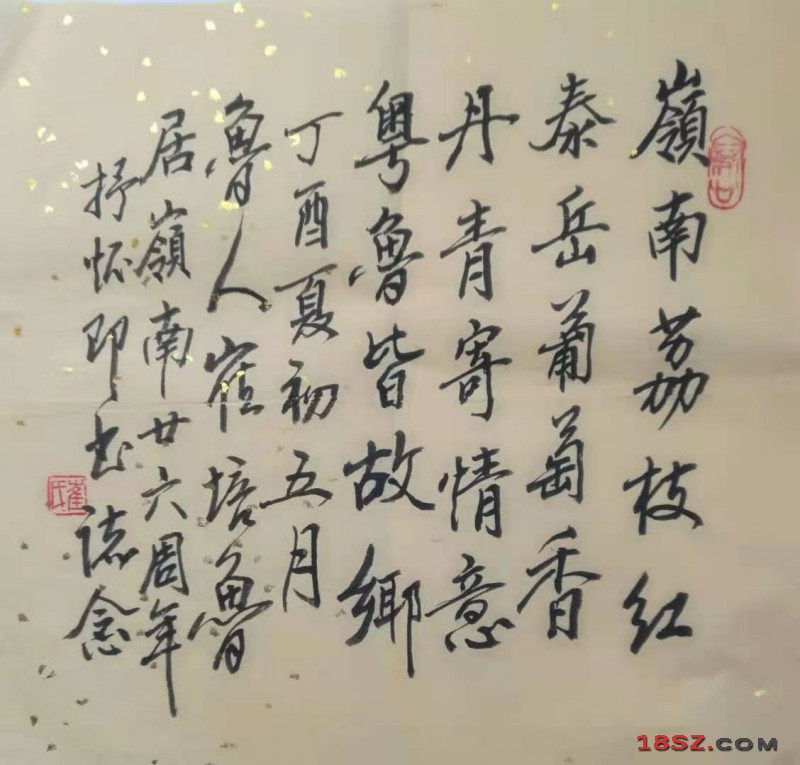 嶺南荔枝红
泰岳葡萄香
丹青寄情意
粤魯皆故鄉
丁酉夏初五月
魯人崔培魯
居嶺南廿六周年
抒怀即书誌念
崔氏
18SZ.COM